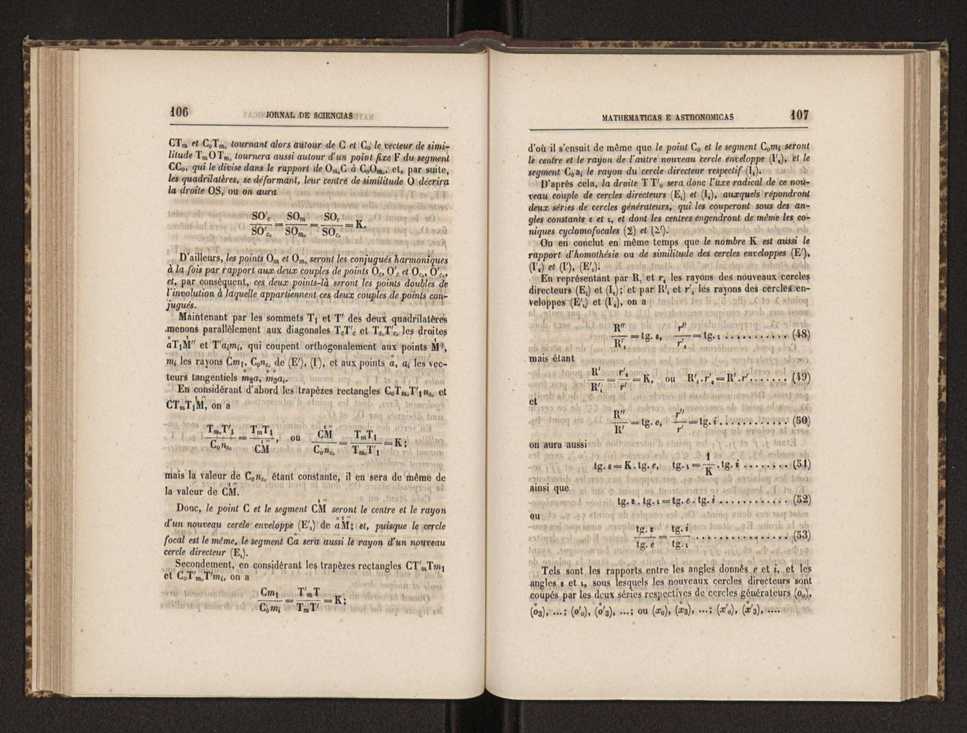 106 JORNAL DE SCIENCIAS
CTₘ et C₀Tₘ, tournant alors autour de C et C₀ le vecteur de simi-
litude TₘOTₘ, tournera aussi autour d'un point fixe F du segment
CC₀, qui le divise dans le rapport de OₘC à C₀Oₘ,, et, par suite,
les quadrilatères, se déformant, leur centre de similitude O décrira
la droite OS, ou on aura
SO'c/SO'c₀ = SOm/SOm₀ = SOc/SOc₀ = K.
D'ailleurs, les points Oₘ et Oₘ, seront les conjugués harmoniques
à la fois par rapport aux deux couples de points Oc, O'c et Oc₀, O'c₀,
et, par conséquent, ces deux points-là seront les points doubles de
l'involution à laquelle appartiennent ces deux couples de points con-
jugués.
Maintenant par les sommets T₁ et T' des deux quadrilatères
menons parallèlement aux diagonales TcT'c et Tc₀T'c₀ les droites
aT₁M'' et T'aᵢmᵢ, qui coupent orthogonalement aux points M',
mᵢ les rayons Cm₁, C₀nc₀ de (E'), (I'), et aux points a, aᵢ les vec-
teurs tangentiels m₂a, m₂aᵢ.
En considérant d'abord les trapèzes rectangles C₀Tₘ,T'₁nc₀ et
CTₘT₁M, on a
Tₘ,T'₁/C₀nc₀ = TₘT₁/CM, ou CM/C₀nc₀ = TₘT₁/Tₘ,T'₁ = K;
mais la valeur de C₀nc₀ étant constante, il en sera de même de
la valeur de CM.
Donc, le point C et le segment CM seront le centre et le rayon
d'un nouveau cercle enveloppe (E'ₛ) de aM; et, puisque le cercle
focal est le même, le segment Ca sera aussi le rayon d'un nouveau
cercle directeur (Eₛ).
Secondement, en considérant les trapèzes rectangles CT'ₘTm₁
et C₀T'ₘT'mᵢ, on a
Cm₁/C₀mᵢ = T'ₘT/TₘT' = K;
MATHEMATICAS E ASTRONOMICAS 107
d'où il s'ensuit de même que le point C₀ et le segment C₀mᵢ seront
le centre et le rayon de l'autre nouveau cercle enveloppe (I'ₛ), et le
segment C₀aᵢ le rayon du cercle directeur respectif (Iₛ).
D'après cela, la droite TT', sera donc l'axe radical de ce nou-
veau couple de cercles directeurs (Eₛ) et (Iₛ), auxquels répondront
deux séries de cercles générateurs, qui les couperont sous des an-
gles constants ε et ι, et dont les centres engendront de même les co-
niques cyclomofocales (Σ) et (Σ').
On en conclut en même temps que le nombre K est aussi le
rapport d'homothésie ou de similitude des cercles enveloppes (E'),
(I'ₛ) et (I'), (E'ₛ).
En représentant par Rₛ et rₛ les rayons des nouveaux cercles
directeurs (Eₛ) et (Iₛ); et par R'ₛ et r'ₛ les rayons des cercles en-
veloppes (E'ₛ) et (I'ₛ), on a
R''/R'ₛ = tg. ε, r''/r'ₛ = tg. ι . . . . . . . . . . (48)
mais étant
R'/R'ₛ = r'ₛ/r' = K, ou R'ₛ.r'ₛ = R'.r'. . . . . . . (49)
et
R''/R' = tg. e, r''/r' = tg. i . . . . . . . . . . . (50)
on aura aussi
tg. ε = K. tg. e, tg. ι = 1/K . tg. i . . . . . . . . (51)
ainsi que
tg. ε . tg. ι = tg. e . tg. i . . . . . . . . . . . (52)
ou
tg. ε/tg. e = tg. i/tg. ι . . . . . . . . . . . . . . (53)
Tels sont les rapports entre les angles donnés e et i, et les
angles ε et ι, sous lesquels les nouveaux cercles directeurs sont
coupés par les deux séries respectives de cercles générateurs (o₀),
(o₃), ...; (o'₀), (o'₃), ...; ou (x₀), (x₃), ...; (x'₀), (x'₃), ....